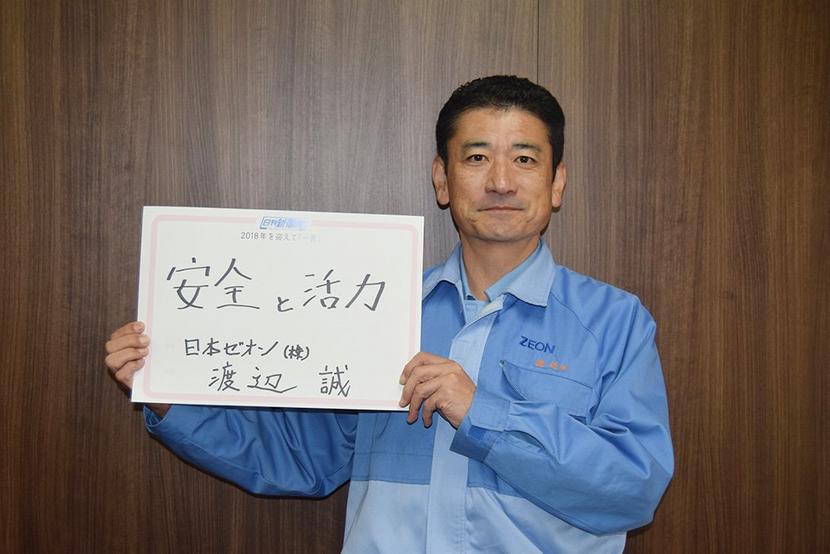 2018年を迎えて「一言」
安全と活力
日本ゼオン(株)
渡辺 誠
ZEON